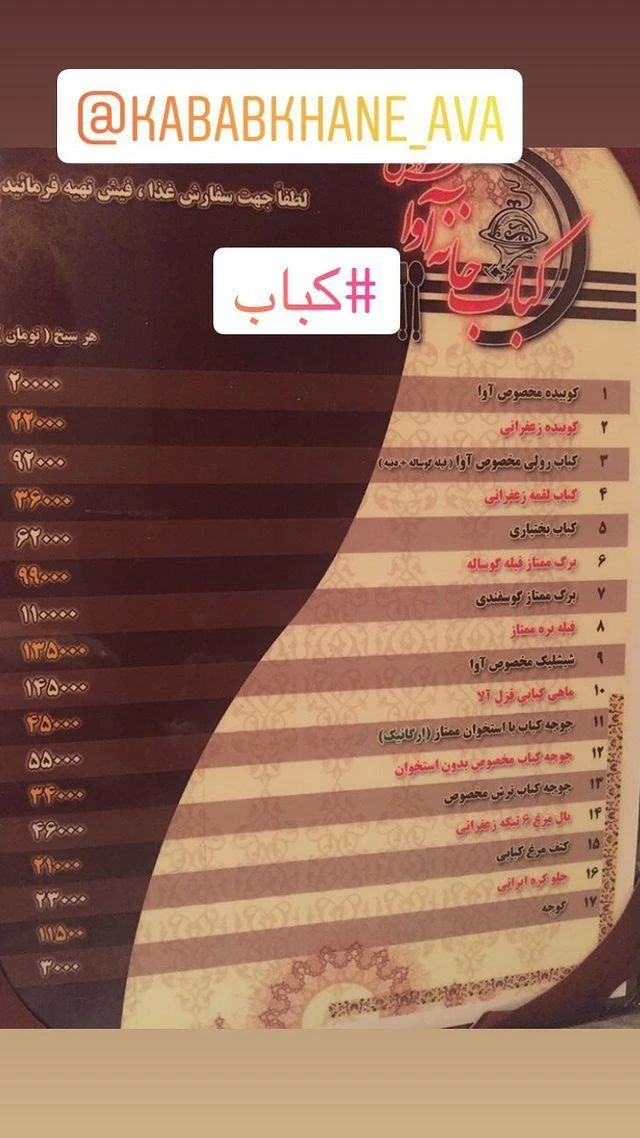 @KABABKHANE_AVA
لطفاً جهت سفارش غذا ، فیش تهیه فرمائید
کباب خانه آوا
#کباب
هر سیخ ( تومان )
۱ کوبیده مخصوص آوا ۲۰۰۰۰
۲ کوبیده زعفرانی ۲۲۰۰۰
۳ کباب رولی مخصوص آوا ( فیله گوساله + دنبه ) ۹۲۰۰۰
۴ کباب لقمه زعفرانی ۳۶۰۰۰
۵ کباب بختیاری ۶۲۰۰۰
۶ برگ ممتاز فیله گوساله ۹۹۰۰۰
۷ برگ ممتاز گوسفندی ۱۱۰۰۰۰
۸ فیله بره ممتاز ۱۳۵۰۰۰
۹ شیشلیک مخصوص آوا ۱۴۵۰۰۰
۱۰ ماهی کبابی قزل آلا ۴۵۰۰۰
۱۱ جوجه کباب با استخوان ممتاز (ارگانیک) ۵۵۰۰۰
۱۲ جوجه کباب مخصوص بدون استخوان ۳۴۰۰۰
۱۳ جوجه کباب ترش مخصوص ۴۶۰۰۰
۱۴ بال مرغ ۶ تیکه زعفرانی ۲۱۰۰۰
۱۵ کتف مرغ کبابی ۲۳۰۰۰
۱۶ چلو کره ایرانی ۱۱۵۰۰
۱۷ گوجه ۳۰۰۰